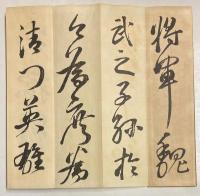 将軍魏
武之子孫於
今為庶為
清門英雄